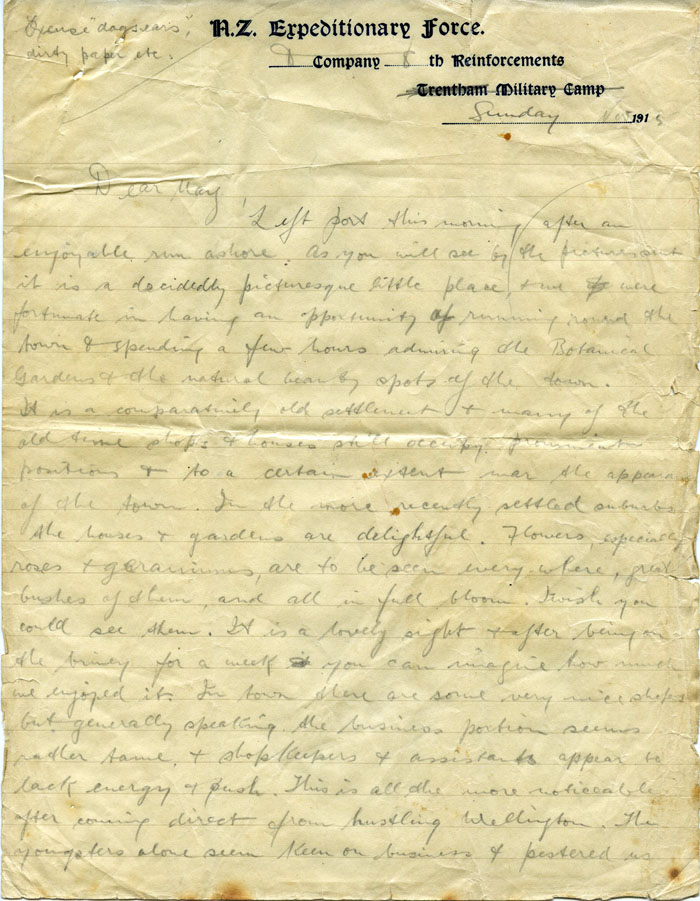 Excuse "dogsears",
dirty paper etc.
N.Z. Expeditionary Force.
D Company 8 th Reinforcements
Trentham Military Camp
Sunday 1915
Dear May,
Left port this morning after an
enjoyable run ashore. As you will see by the
it is a decidedly picturesque little place, & we were
fortunate in having an opportunity of running round the
town & spending a few hours admiring the Botanical
Gardens & the natural beauty spots of the town.
It is a comparatively old settlement & many of the
old time shops & houses still occupy prominent
positions & to a certain extent mar the appeara
of the town. In the more recently settled suburbs
the houses & gardens are delightful. Flowers, especially
roses & geraniums, are to be seen everywhere, great
bushes of them, and all in full bloom. I wish you
could see them. It is a lovely sight & after being on
the briney for a week you can imagine how much
we enjoyed it. In town there are some very nice shops
but generally speaking the business portion seems
rather tame, & shopkeepers & assistants appear to
lack energy & push. This is all the more noticeable
after coming direct from hustling Wellington. The
youngsters alone seem keen on business & pestered us